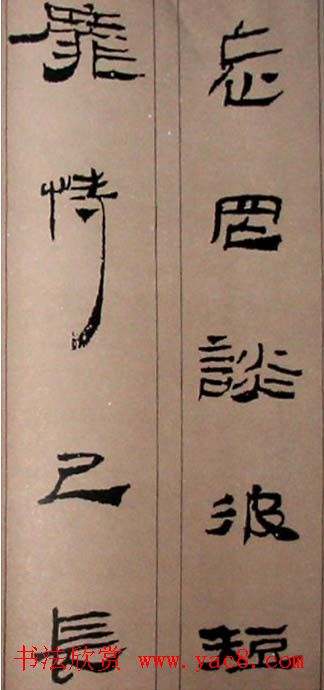 忘罔談彼短
靡恃己長
书法欣赏 www.yac8.com